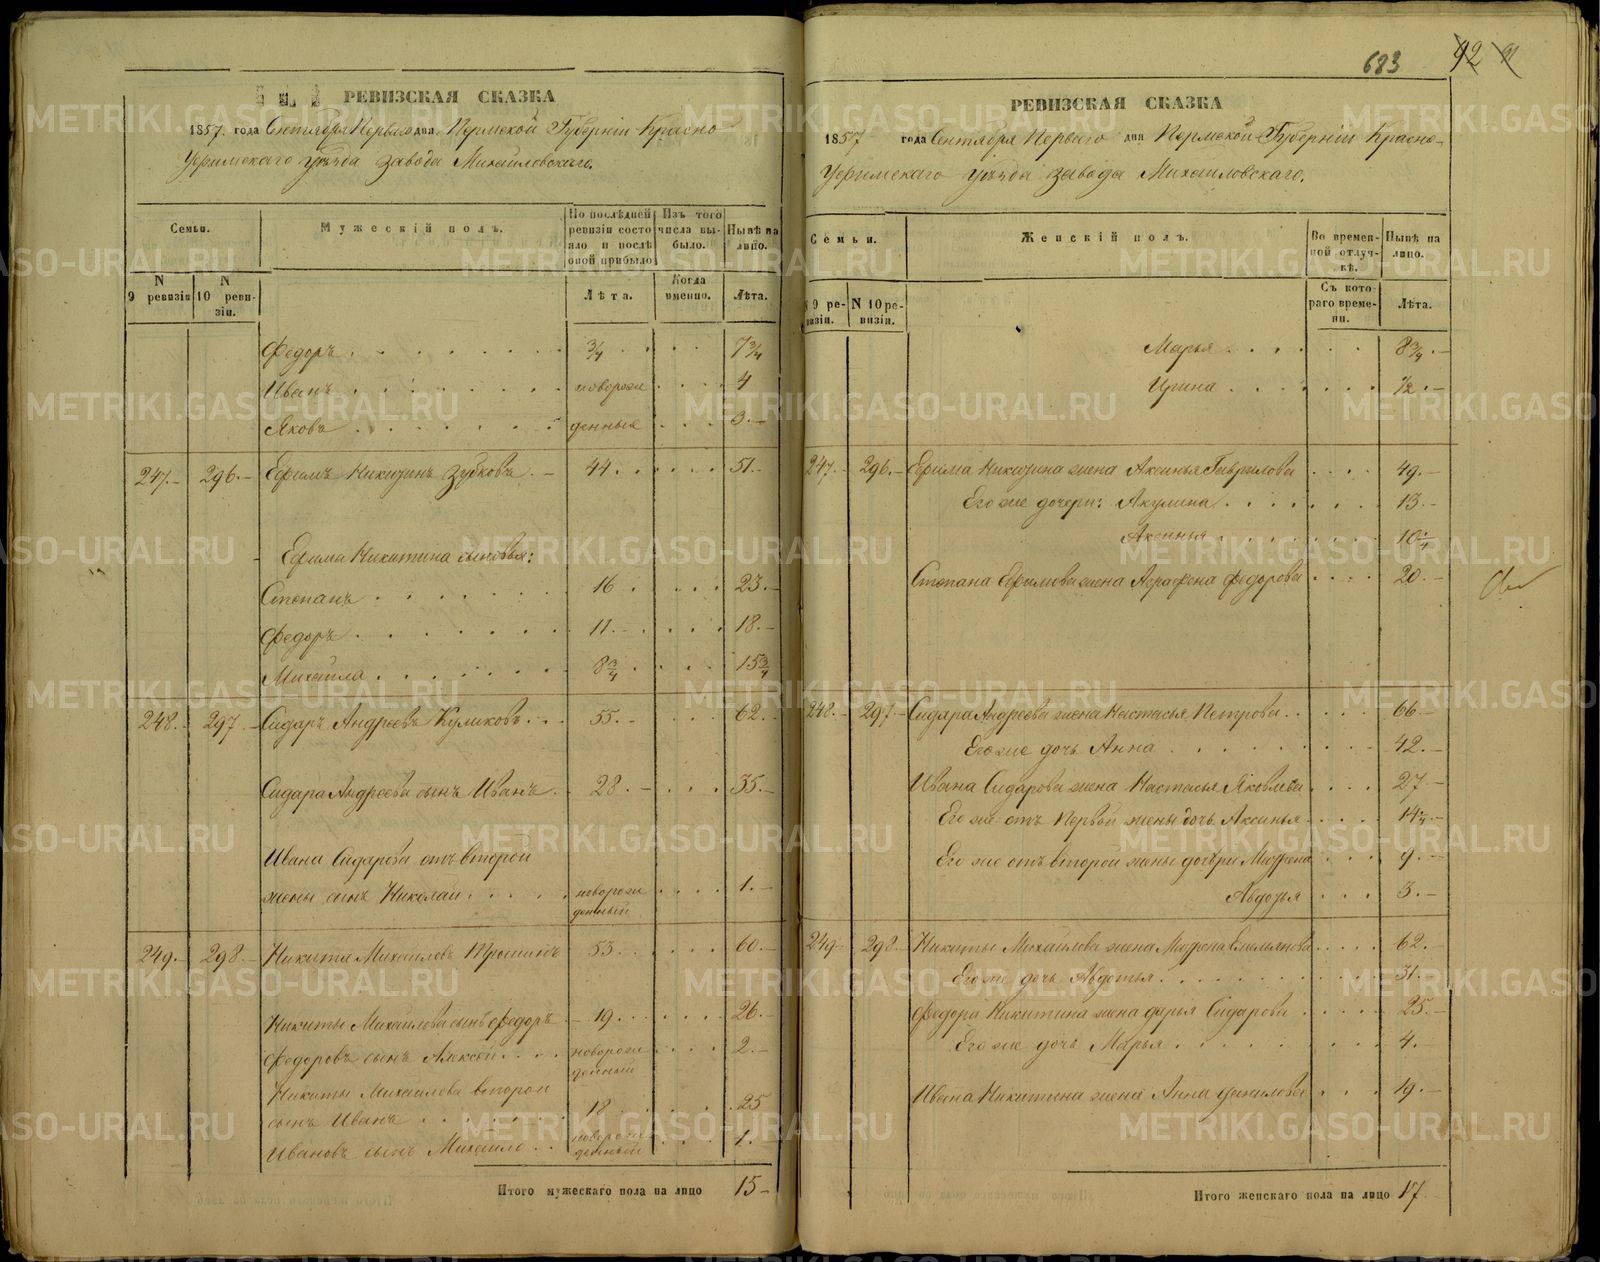 РЕВИЗСКАЯ СКАЗКА
1857 года Сентября Перваго дня Пермской Губерніи Красно
Уфимскаго уѣзда завода Михайловскаго.
Семьи.
Мужескій полъ.
По послѣдней ревизіи состояло и послѣ оной прибыло
Изъ того числа выбыло.
Нынѣ на лицо.
N 9 ревизіи
N 10 ревизіи.
Лѣта.
Когда именно.
Лѣта.
Федоръ 3/4 7 3/4
Иванъ наворож 4
Яковъ денные 3.-
247.- 296.- Ефимъ Никитинъ Зубковъ.- 44 51.-
Ефима Никитина сыновья:
Степанъ 16 23.-
Федоръ 11.- 18.-
Михайла 8 3/4 15 3/4
248.- 297.- Сидаръ Андреевъ Куликовъ 55.- 62.-
Сидара Андреева сынъ Иванъ 28.- 35.-
Ивана Сидарова отъ второй
жены сынъ Николай наворож 1.-
денный
249.- 298.- Никита Михайловъ 53 60.-
Никиты Михайлова сынъ Федоръ 19 26.-
Федоровъ сынъ Алексей наворож 2.-
денный
Никиты Михайлова второй
сынъ Иванъ 18 25
Ивановъ сынъ Михайло наворож 1.
денный
Итого мужескаго пола на лицо 15-
683 92
РЕВИЗСКАЯ СКАЗКА
1857 года Сентября Перваго дня Пермской Губерніи Красно-
Уфимскаго уѣзда завода Михайловскаго.
Семьи.
Женскій полъ.
Во временной отлучкѣ.
Нынѣ на лицо.
N 9 ревизіи.
N 10 ревизіи.
Съ котораго времени.
Лѣта.
Марья 8 3/4.-
Ирина 1/2.-
247.- 296.- Ефима Никитина жена Аксинья Гаврилова 49.-
Его же дочери: Акулина 13.-
Аксинья 10
Степана Ефимова жена Аграфена Федорова 20.-
248.- 297.- Сидара Андреева жена Настасья Петрова 66-
Его же дочь Анна 42.-
Ивана Сидарова жена Настасья Яковлева 27.-
Его же отъ первой жены дочь Аксинья 14
Его же отъ второй жены дочери Матрена 9.-
Авдотья 3.-
249- 298.- Никиты Михайлова жена Матрена Емельянова 62.-
Его же дочь Авдотья 31.-
Федора Никитина жена Дарья Сидарова 25.-
Его же дочь Марья 4.-
Ивана Никитина жена Анна Данилова 19.-
Итого женскаго пола на лицо 17
METRIKI.GASO-URAL.RU